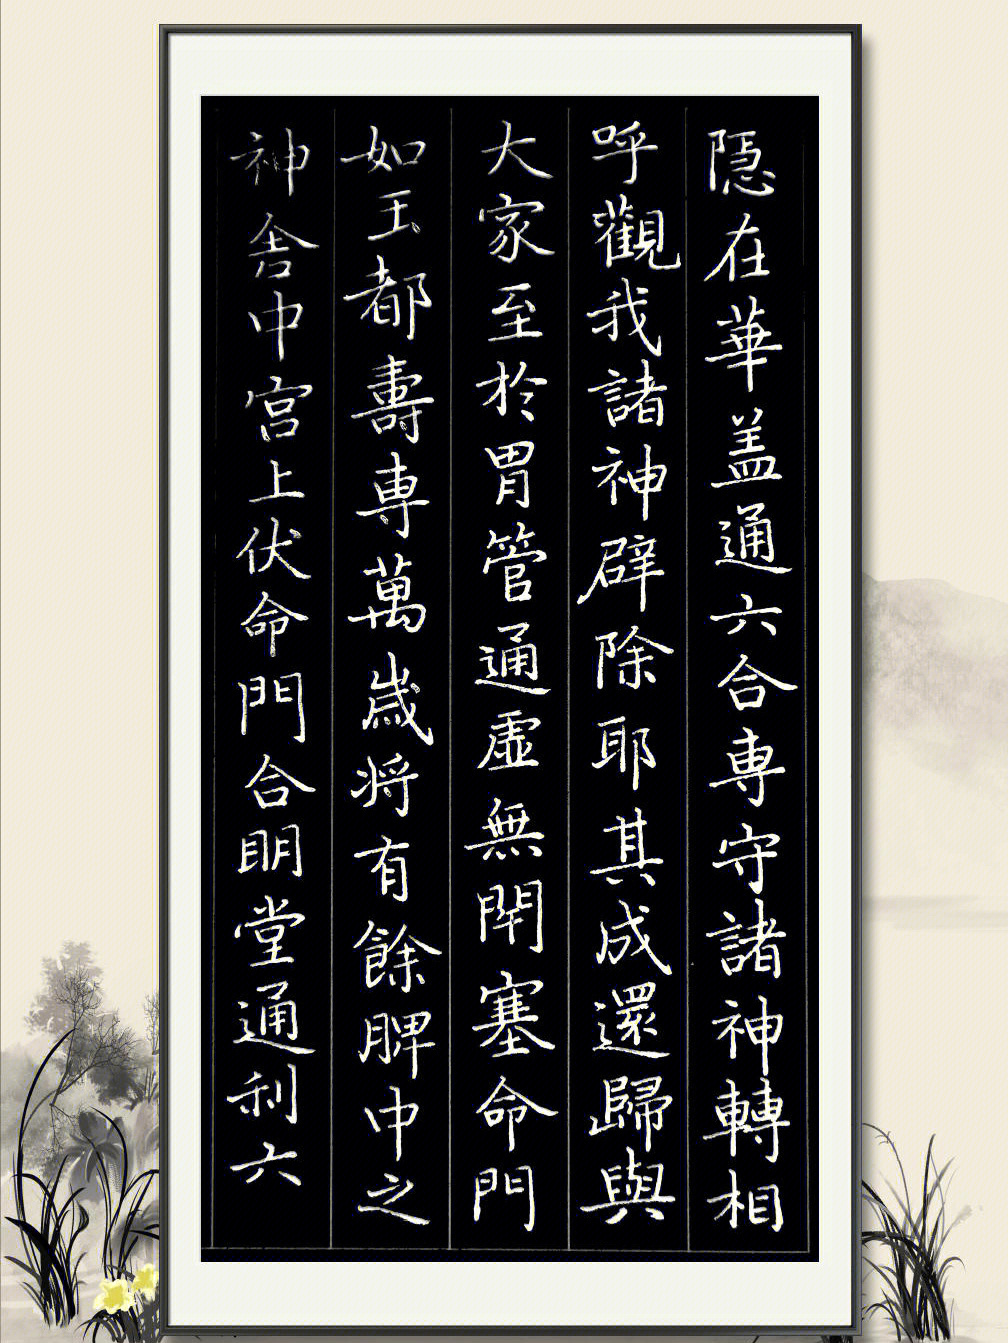 隱在華盖通六合專守諸神轉相
呼觀我諸神辟除耶其成還歸與
大家至於胃管通虛無閉塞命門
如玉都壽專萬歲将有餘脾中之
神舍中宮上伏命門合明堂通利六